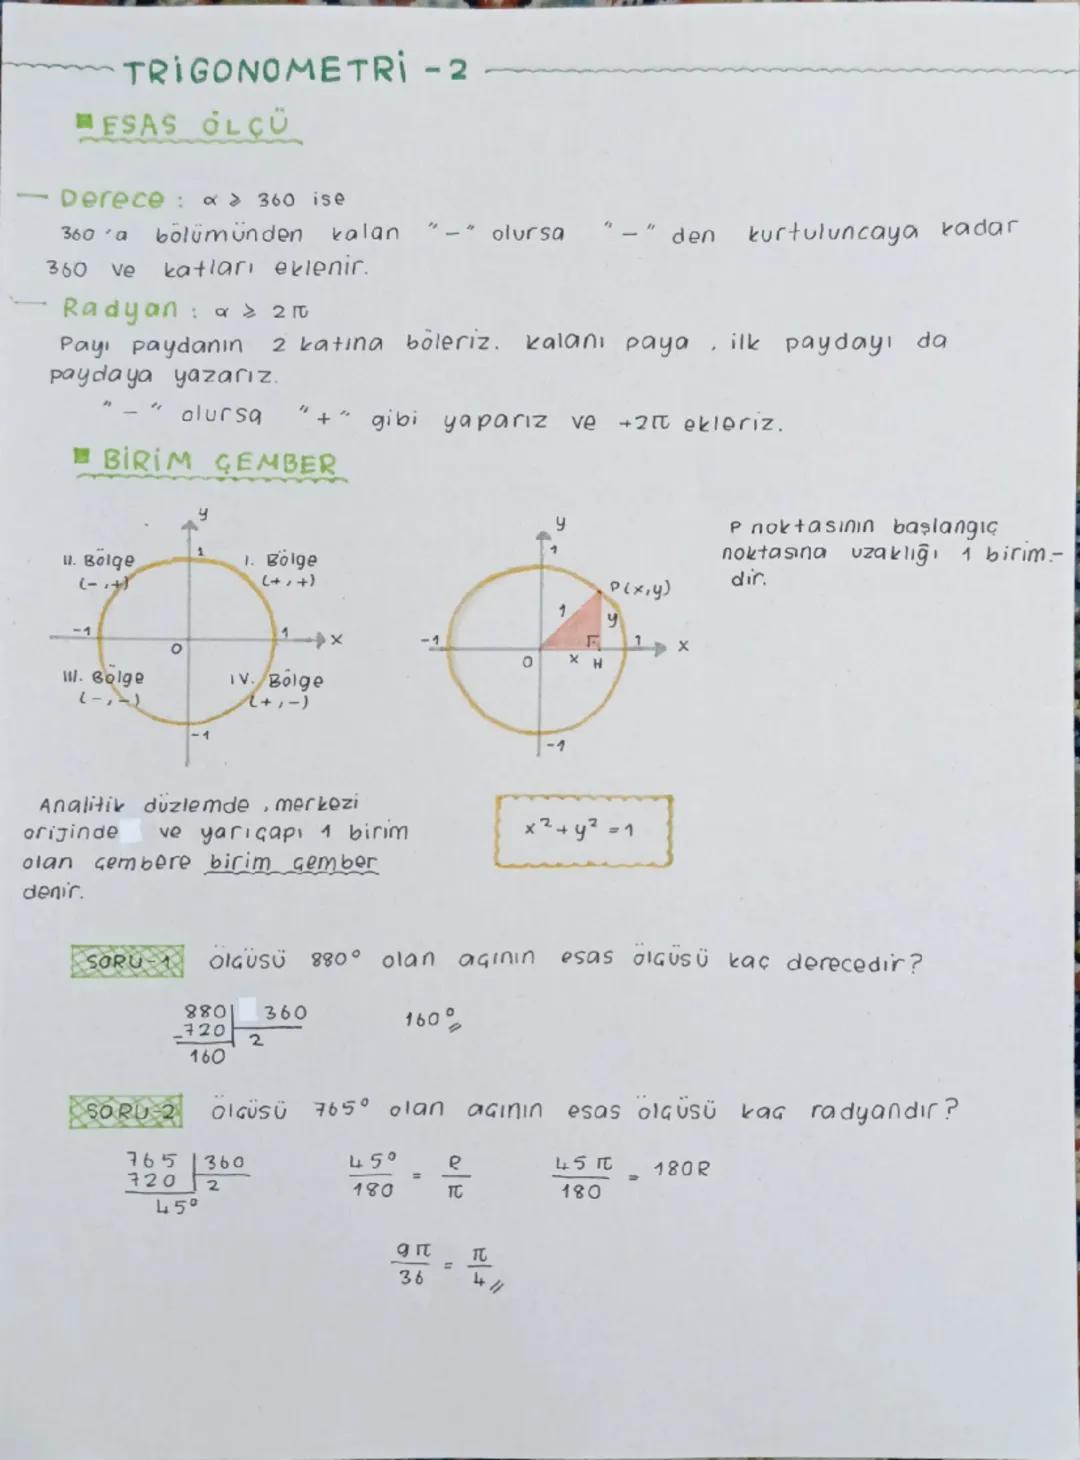 TRİGONOMETRİ -2
ESAS ÖLÇÜ
Derece : α ⩾ 360 ise
360 'a bölümünden kalan "-" olursa "-" den kurtuluncaya kadar
360 ve katları eklenir.
Radyan : α ⩾ 2π
Payı paydanın 2 katına böleriz. Kalanı paya , ilk paydayı da
paydaya yazarız.
"-" olursa "+" gibi yaparız ve +2π ekleriz.
BİRİM ÇEMBER
y
1
II. Bölge
(-,+)
I. Bölge
(+,+)
-1
O
1
x
III. Bölge
(-,-)
IV. Bölge
(+,-)
-1
y
1
P(x,y)
1
y
-1
O
x
H
1
x
-1
P noktasının başlangıç
noktasına uzaklığı 1 birim-
dir.
Analitik düzlemde , merkezi
orijinde ve yarıçapı 1 birim
olan çembere birim çember
denir.
x²+y² =1
SORU-1 Ölçüsü 880° olan açının esas ölçüsü kaç derecedir?
880 360
-720 2
160
160°
SORU-2 Ölçüsü 765° olan açının esas ölçüsü kaç radyandır?
765 360
720 2
45°
45°/180 = R/π
45π/180 = 180R
9π/36 = π/4